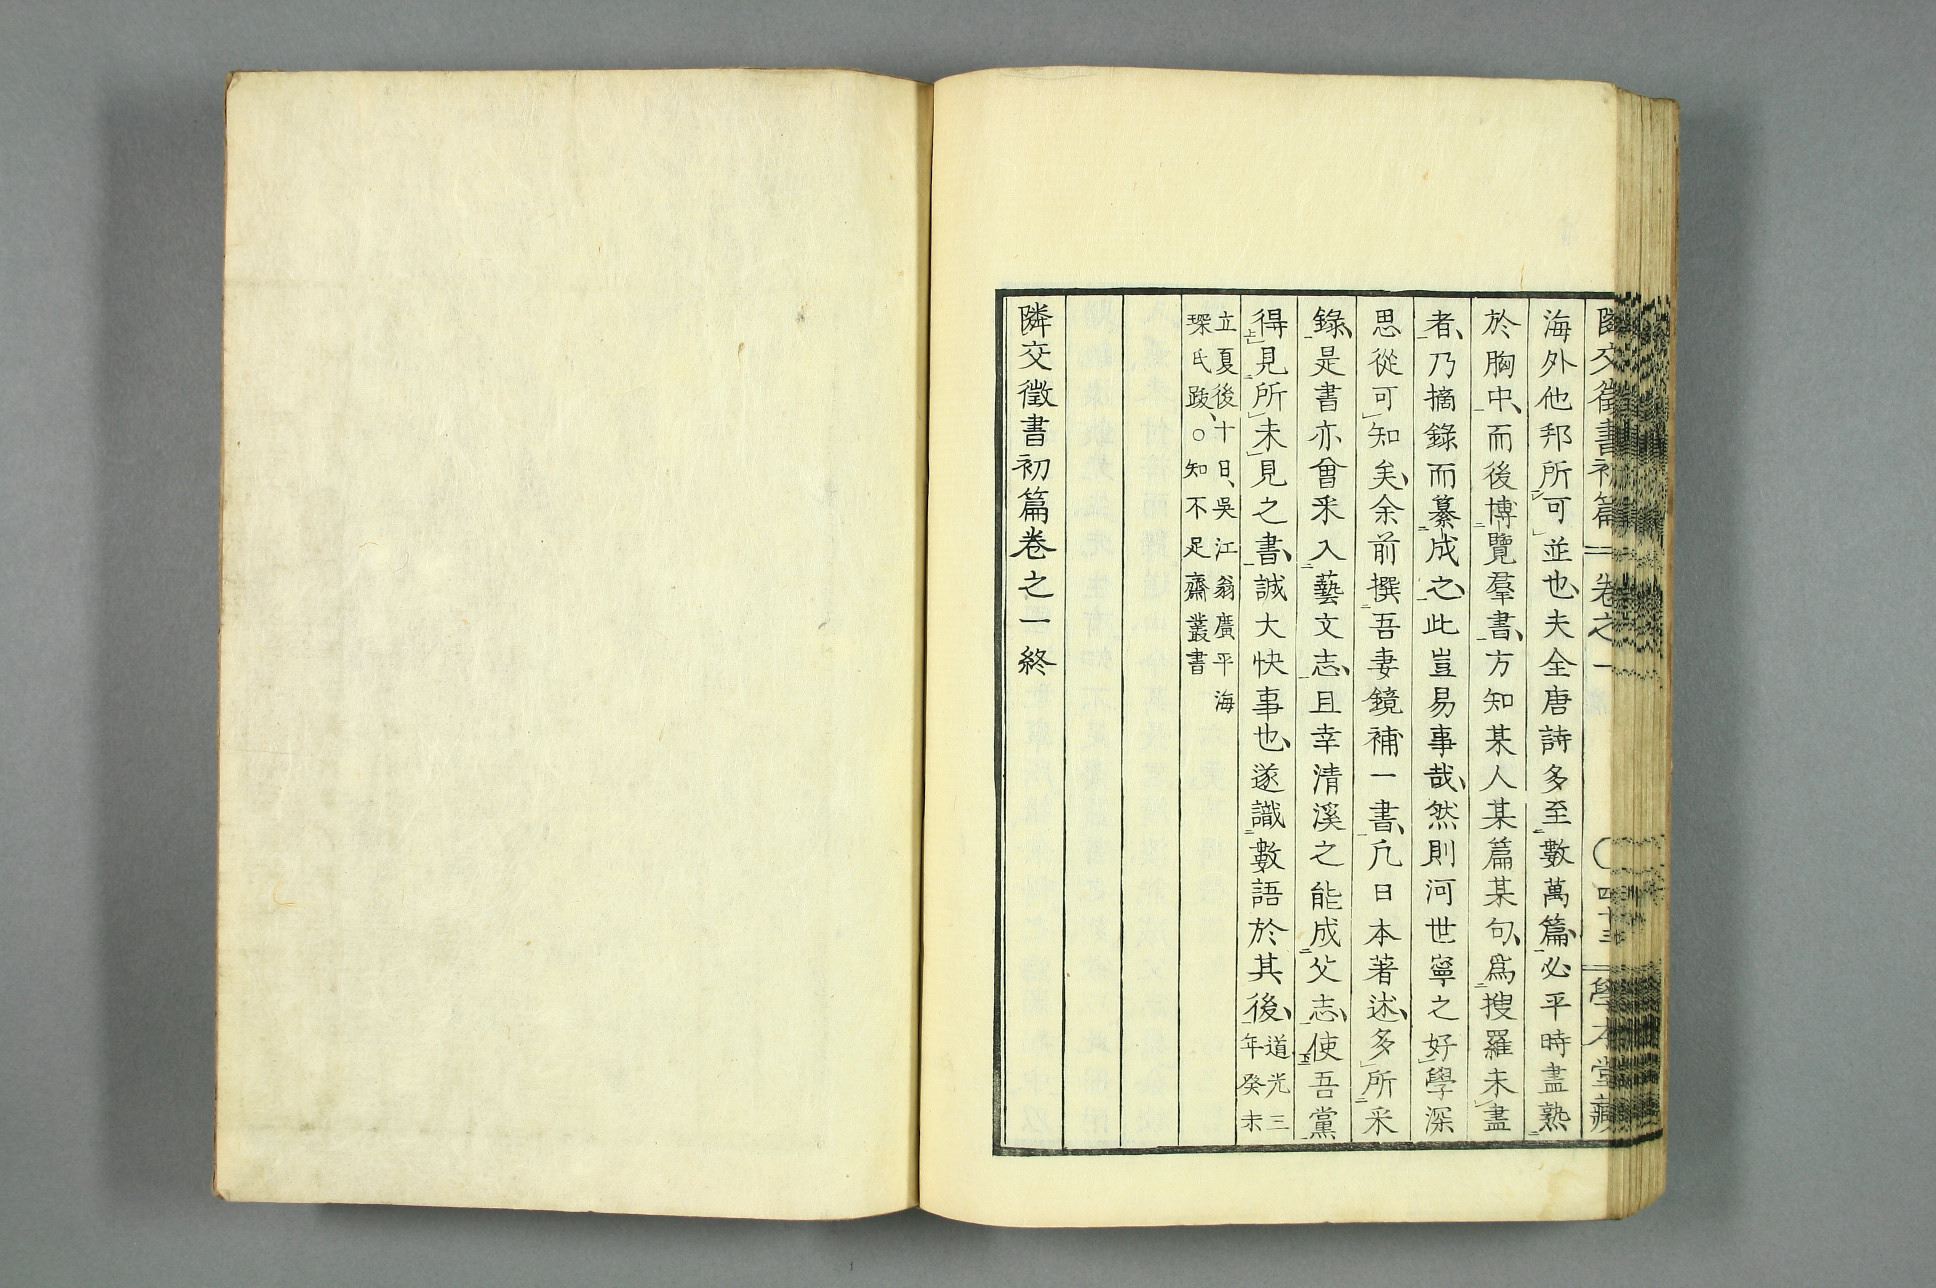 隣交徵書初篇 卷之一 四十三 學本堂藏
海外他邦所可並也夫全唐詩多至數萬篇必平時盡熟
於胸中、而後博覽羣書、方知某人某篇某句、爲搜羅未盡
者、乃摘錄而纂成之、此豈易事哉、然則河世寧之好學深
思從可知矣、余前撰吾妻鏡補一書、凡日本著述、多所采
錄、是書亦曾采入藝文志、且幸清溪之能成父志、使吾黨
得見所未見之書、誠大快事也、遂識數語於其後、道光三
年癸未
立夏後十日、吳江翁廣平海
琛氏跋、○知不足齋叢書
隣交徵書初篇卷之一終